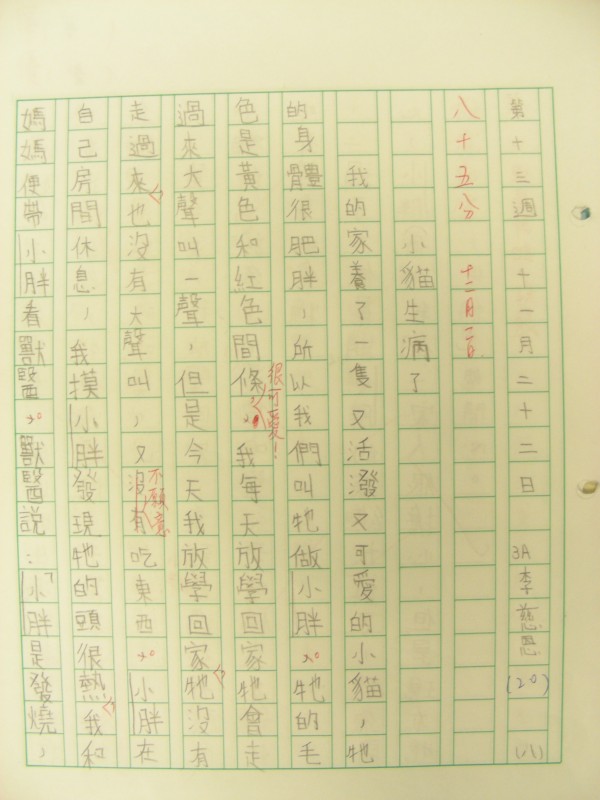 第十三週 十一月二十二日 3A李慈恩(20) (八)
八十五分 十二月一日
小貓生病了
我的家養了一隻又活潑又可愛的小貓，牠
的身體很肥胖，所以我們叫牠做小胖。牠的毛
色是黃色和紅色間條，很可愛！我每天放學回家牠會走
過來大聲叫一聲，但是今天我放學回家牠沒有
走過來也沒有大聲叫，又沒有不願意吃東西。小胖在
自己房間休息，我摸小胖發現牠的頭很熱我和
媽媽便帶小胖看獸醫。獸醫說：「小胖是發燒，